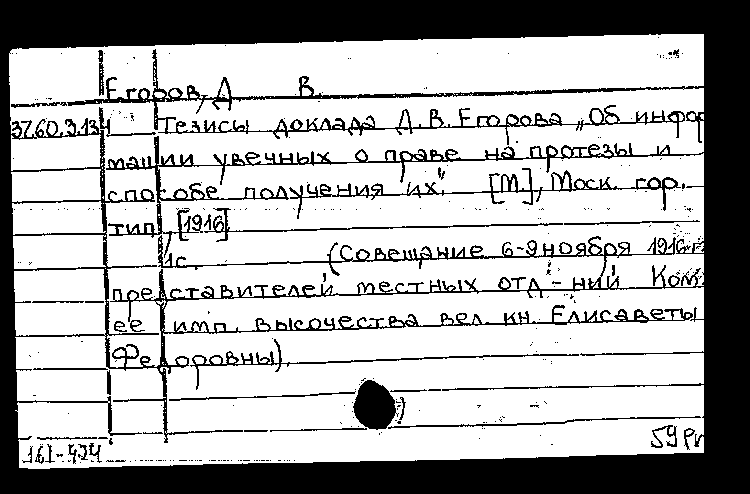 Егоров, Д В.
37.60.3.134 Тезисы доклада Д.В. Егорова „Об инфор
мации увечных о праве на протезы и
способе получения их". [М], Моск. гор.
тип., [1916]
1с. (Совещание 6-9 ноября 1916 г.
представителей местных отд-ний Ком.
ее имп. высочества вел. кн. Елисаветы
Федоровны).
161-474
59